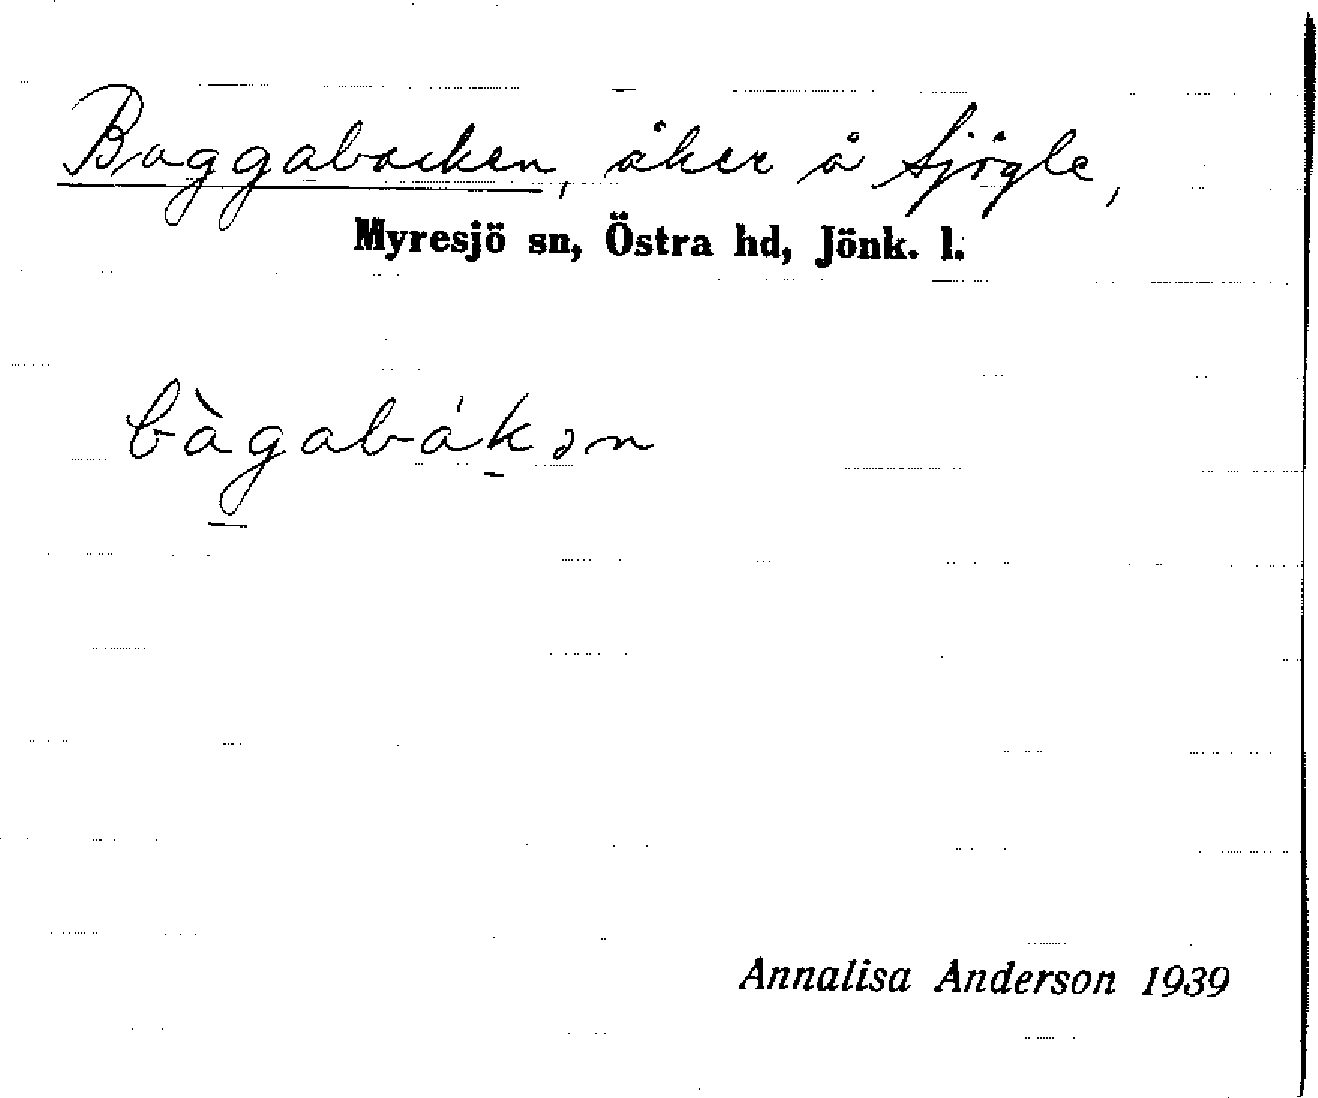 Baggabacken, åker å Sjögle,
Myresjö sn, Östra hd, Jönk. l.
bàgabákən
Annalisa Anderson 1939